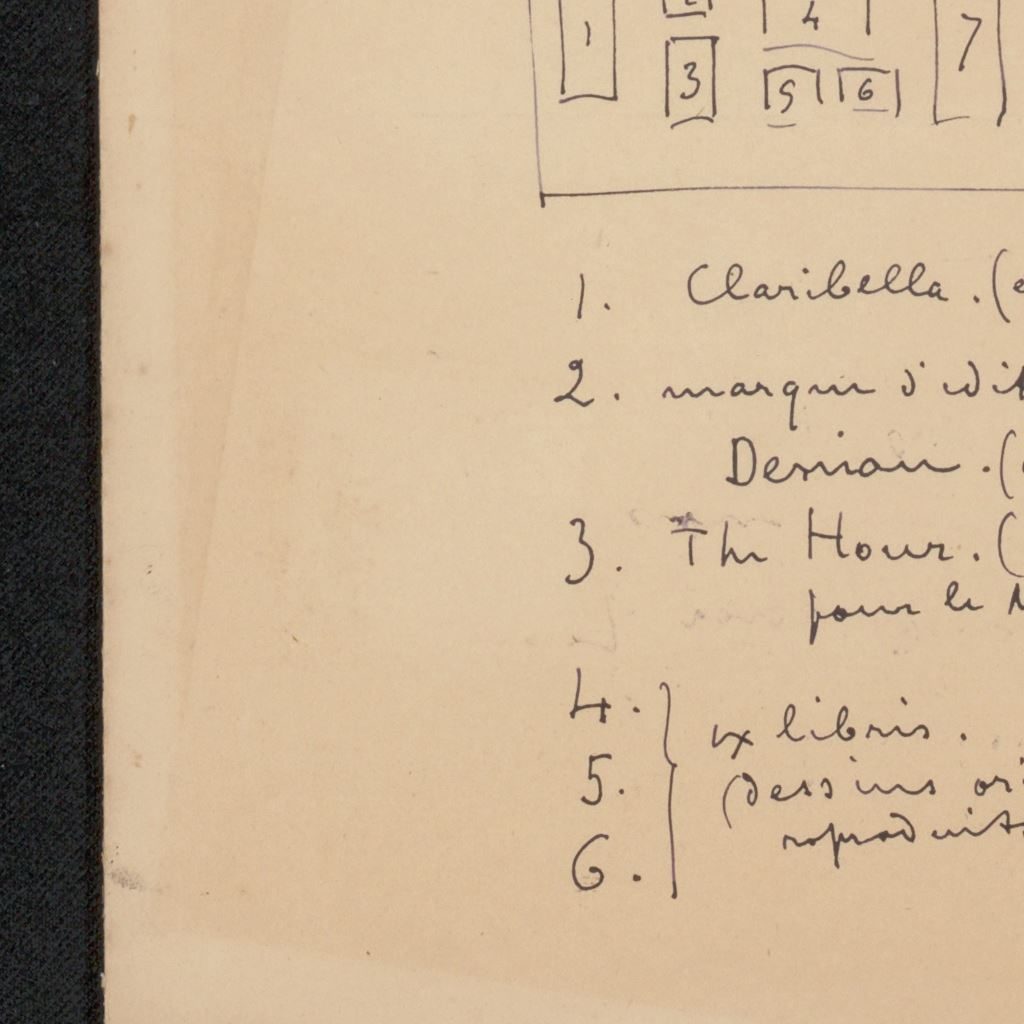 1 3 4 5 6 7
1. Claribella . (
2. marque d'édit
Deman . (
3. The Hour. (
pour le
4.
5.
6.
ex libris.
(dessins ori
reproduits